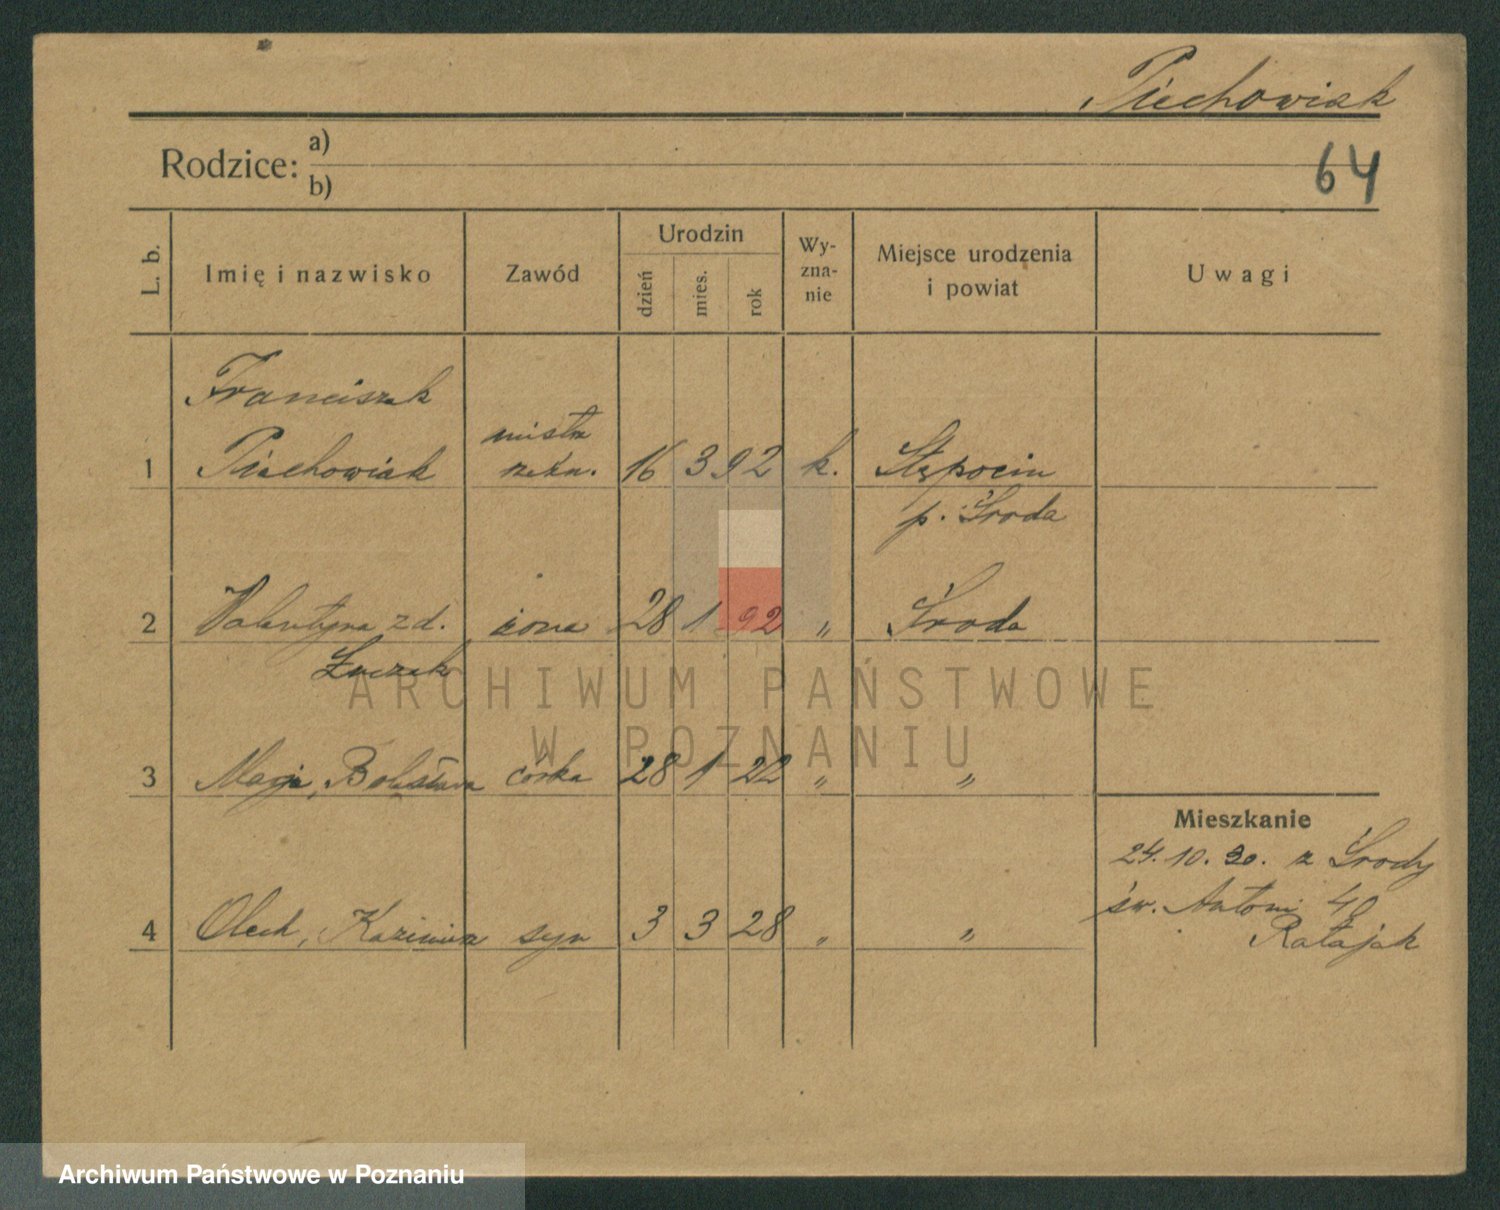 Piechowiak
Rodzice: a)
b)
64
L. b.
Imię i nazwisko
Zawód
Urodzin
dzień
mies.
rok
Wy-
zna-
nie
Miejsce urodzenia
i powiat
Uwagi
Franciszek
mistrz
1 Piechowiak rzeźn. 16 3 92 k. Stępocin
p. Środa
2 Valentyna z d. żona 28 1 92 " Środa
Łuczak
3 Maria, Bolesława córka 28 1 22 " "
Mieszkanie
24. 10. 30. z Środy
św. Antoni 40
4 Olech, Kazimierz syn 3 3 28 " "
Ratajak
ARCHIWUM PAŃSTWOWE
W POZNANIU
Archiwum Państwowe w Poznaniu